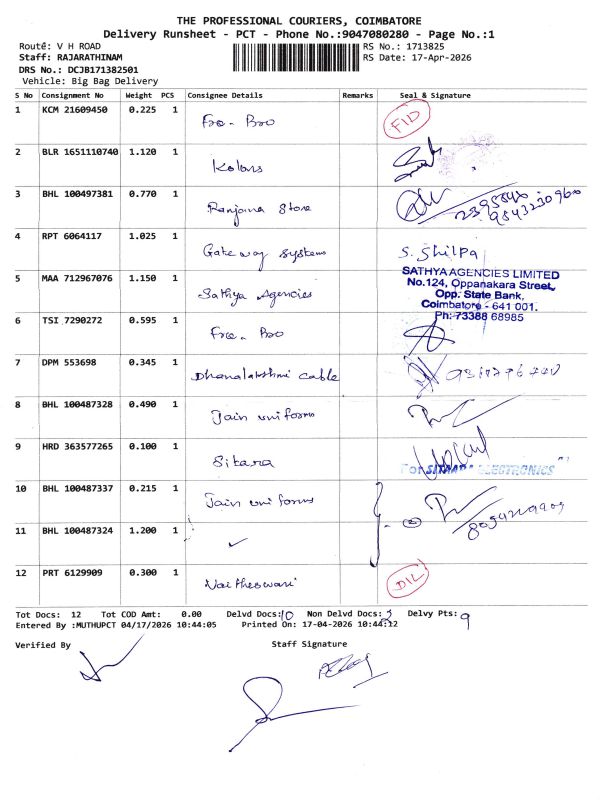 THE PROFESSIONAL COURIERS, COIMBATORE
Delivery Runsheet - PCT - Phone No.:9047080280 - Page No.:1
Route: V H ROAD RS No.: 1713825
Staff: RAJARATHINAM RS Date: 17-Apr-2026
DRS No.: DCJB171382501
Vehicle: Big Bag Delivery
S No Consignment No Weight PCS Consignee Details Remarks Seal & Signature
1 KCM 21609450 0.225 1 Fro - Bro FID
2 BLR 1651110740 1.120 1 Kolors
3 BHL 100497381 0.770 1 Ranjana Store 9543230960
4 RPT 6064117 1.025 1 Gateway Systems S. Shilpa
5 MAA 712967076 1.150 1 Sathya Agencies
SATHYA AGENCIES LIMITED
No.124, Oppanakara Street,
Opp. State Bank,
Coimbatore - 641 001.
Ph: 73388 68985
6 TSI 7290272 0.595 1 Fro - Bro
7 DPM 553698 0.345 1 Dhanalakshmi cable
8 BHL 100487328 0.490 1 Jain uniforms
9 HRD 363577265 0.100 1 Sitara
For SITARA ELECTRONICS
10 BHL 100487337 0.215 1 Jain uniforms
11 BHL 100487324 1.200 1
12 PRT 6129909 0.300 1 DIL
Tot Docs: 12 Tot COD Amt: 0.00 Delvd Docs: 10 Non Delvd Docs: 2 Delvy Pts: 9
Entered By :MUTHUPCT 04/17/2026 10:44:05 Printed On: 17-04-2026 10:44:12
Verified By Staff Signature